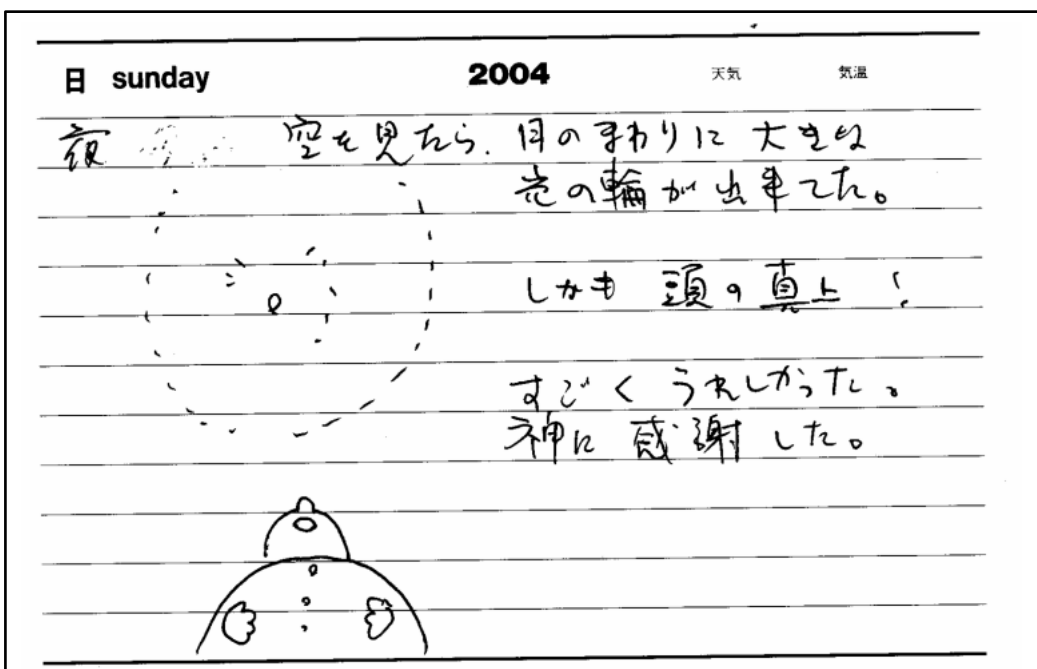 日 sunday 2004 天気 気温
夜 空を見たら、月のまわりに大きな
光の輪が出来てた。
しかも 頭の真上!
すごく うれしかった。
神に感謝した。